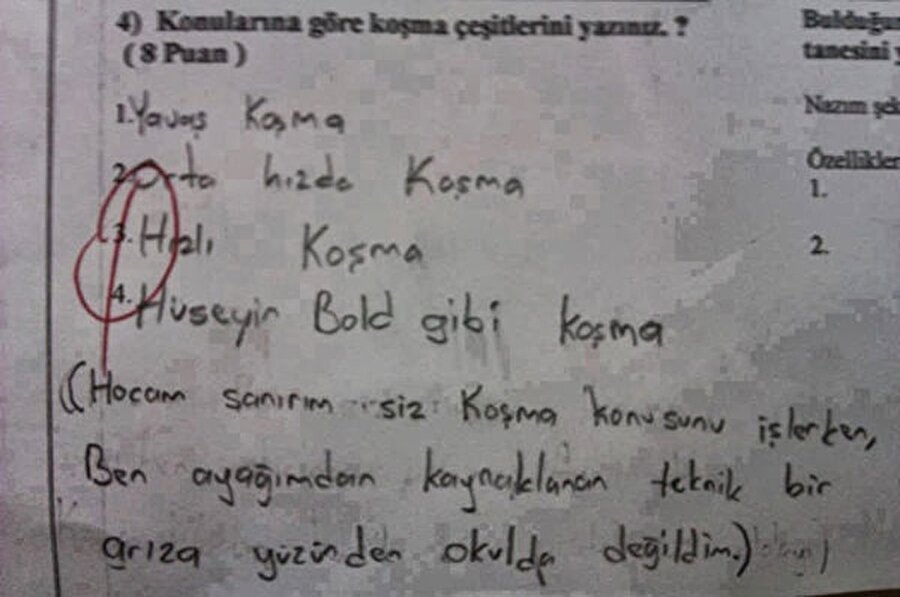 4) Konularına göre koşma çeşitlerini yazınız. ?
( 8 Puan )
1. Yavaş Koşma
2. Orta hızda Koşma
3. Hızlı Koşma
4. Hüseyin Bold gibi koşma
((Hocam sanırım siz Koşma konusunu işlerken,
Ben ayağımdan kaynaklanan teknik bir
arıza yüzünden okulda değildim.)
Bulduğun
tanesini y
Nazım şek
Özellikler
1.
2.